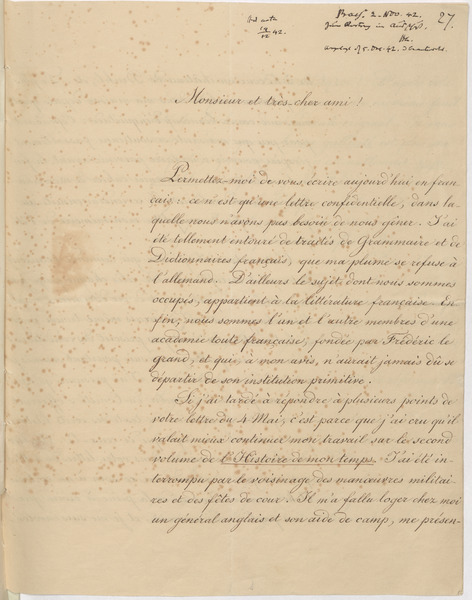 Praes. 2. Nov. 42.
27.
Ad acta
42.
Monsieur et très-cher ami!
Permettez-moi de vous écrire aujourd'hui en fran
çais: ce n'est qu'une lettre confidentielle, dans la
quelle nous n'avons pas besoin de nous gêner. J'ai
été tellement entouré de traités de Grammaire et de
Dictionnaires français, que ma plume se refuse à
l'allemand. D'ailleurs le sujet dont nous sommes
occupés, appartient à la littérature française. En
fin, nous sommes l'un et l'autre membres d'une
académie toute française, fondée par Frédéric le
grand, et qui, à mon avis, n'aurait jamais dû se
départir de son institution primitive.
Si j'ai tardé à répondre à plusieurs points de
votre lettre du 4 Mai, c'est parce que j'ai cru qu'il
valait mieux continuer mon travail sur le second
volume de l'Histoire de mon temps. J'ai été in-
terrompu par le voisinage des manœuvres militai-
res et des fêtes de cour. Il m'a fallu loger chez moi
un général anglais et son aide de camp, me présen-